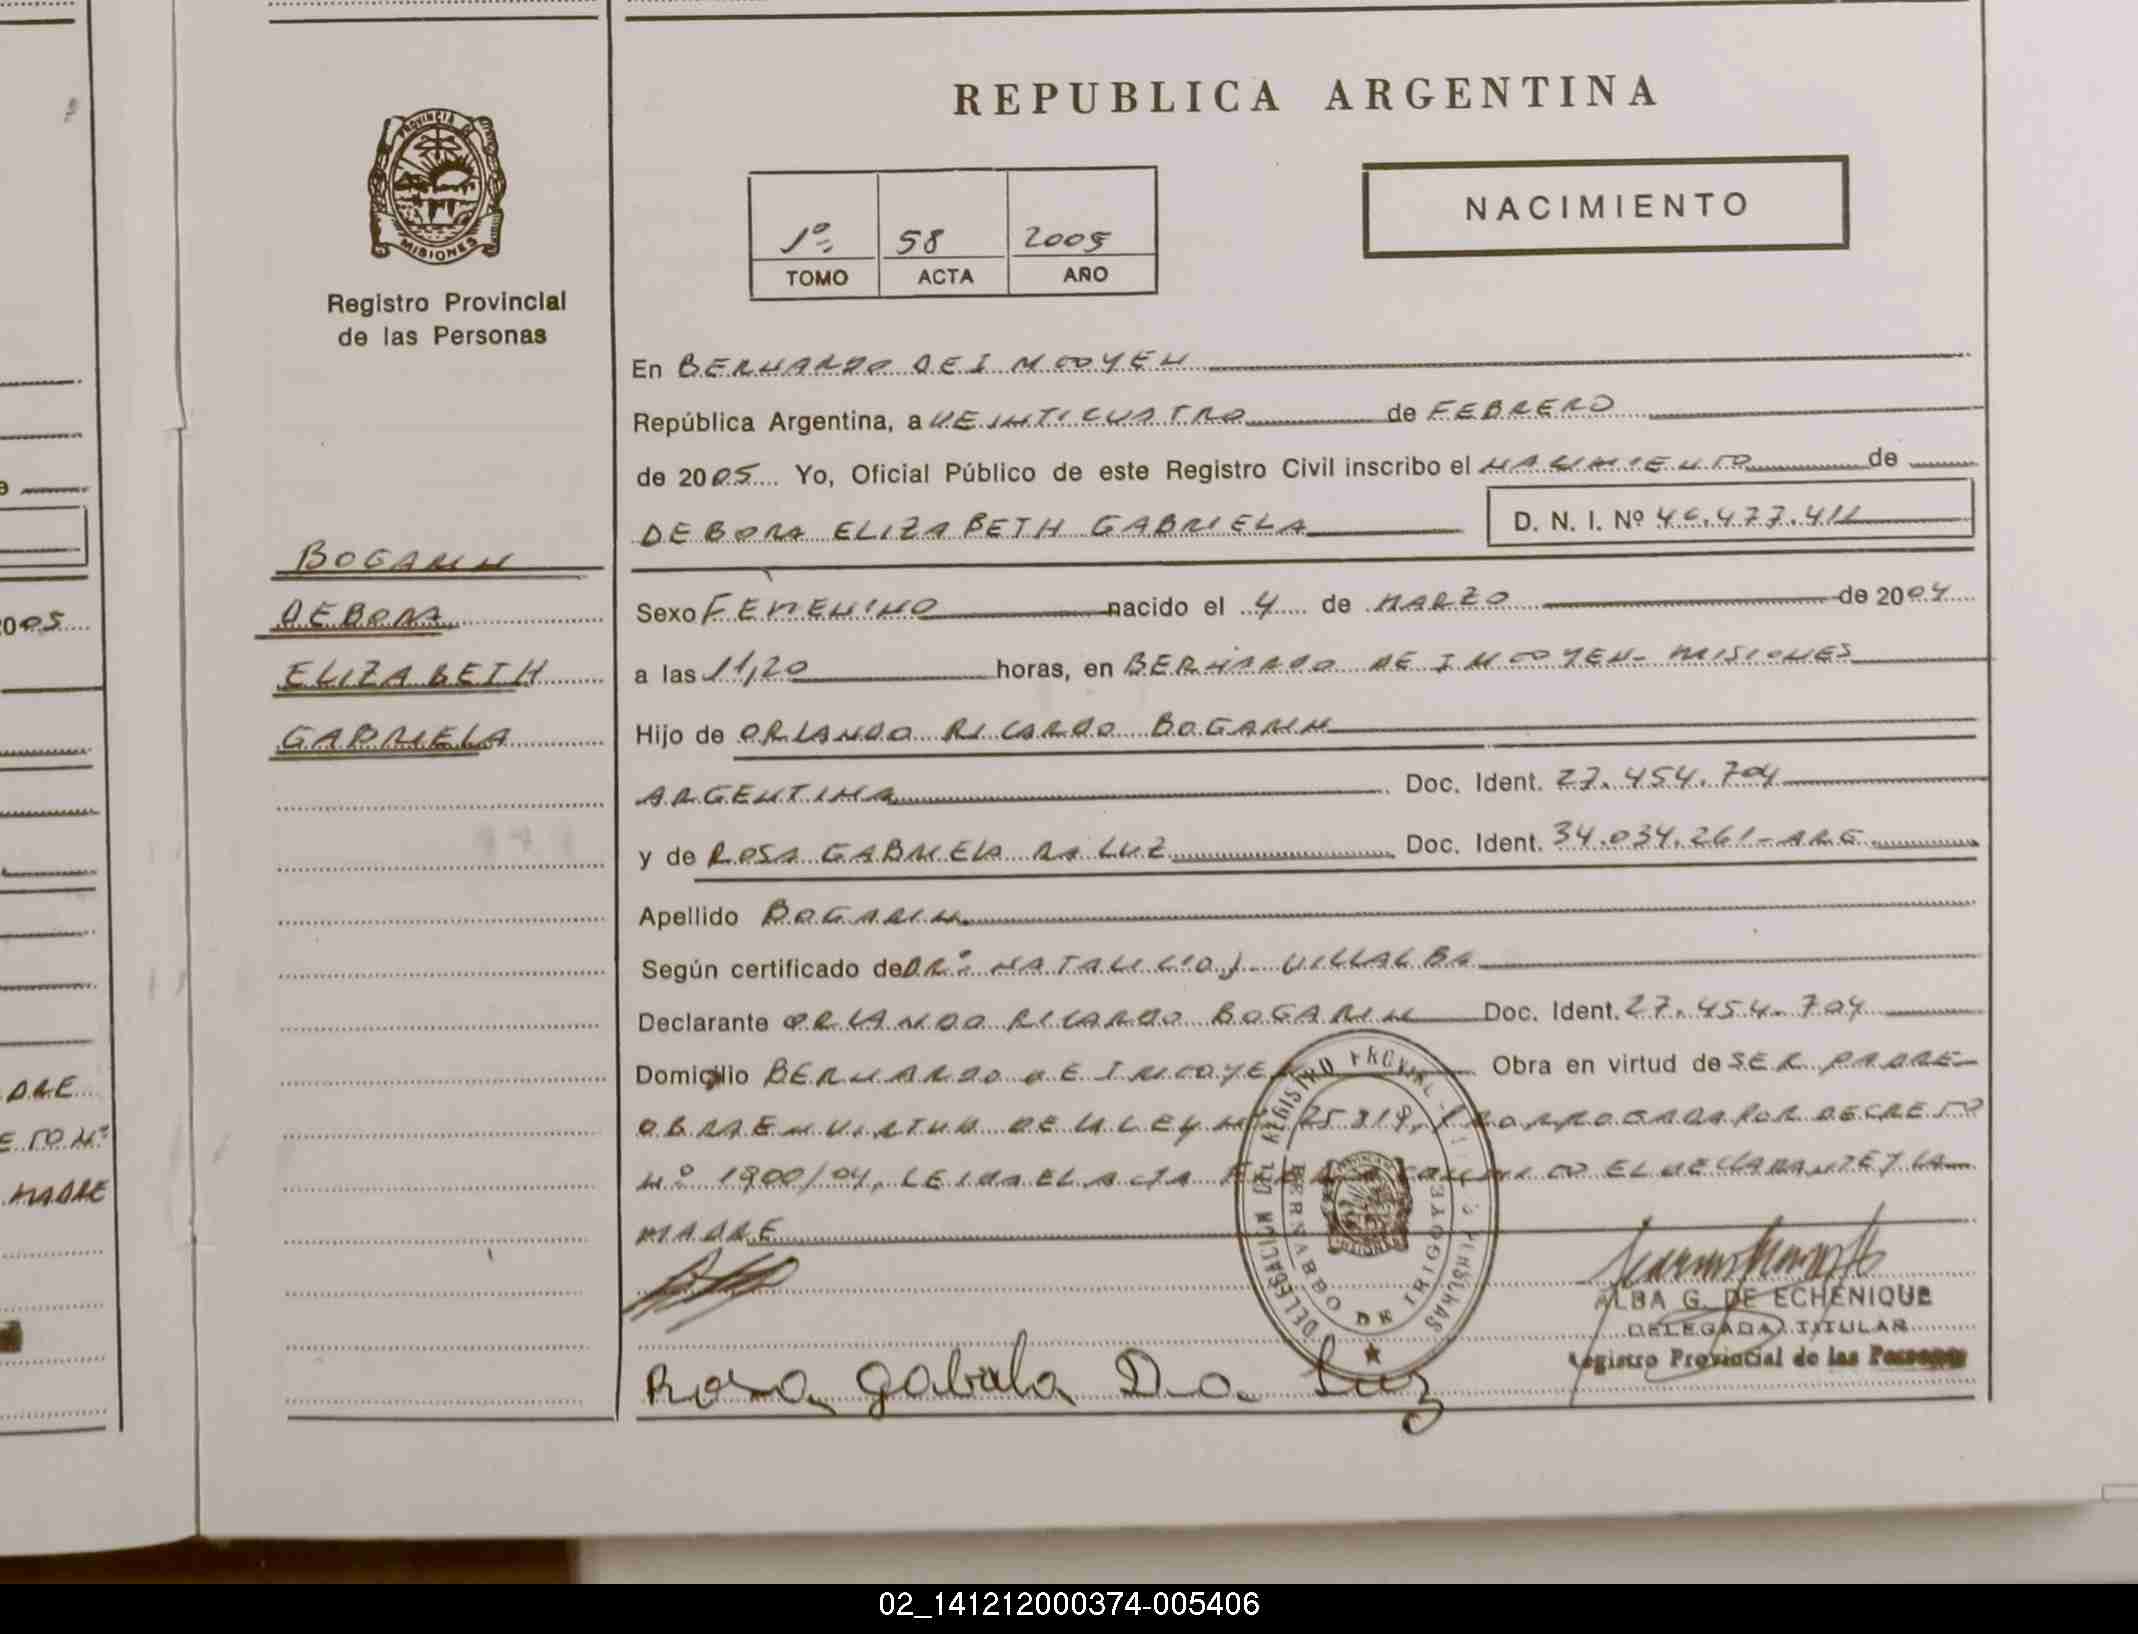 PROVINCIA DE
MISIONES
Registro Provincial
de las Personas
BOGARIN
DEBORA
ELIZABETH
GABRIELA
REPUBLICA ARGENTINA
1º 58 2005
TOMO ACTA AÑO
NACIMIENTO
En BERNARDO DE IRIGOYEN
República Argentina, a VEINTICUATRO de FEBRERO
de 2005 Yo, Oficial Público de este Registro Civil inscribo el NACIMIENTO de
DEBORA ELIZABETH GABRIELA D. N. I. Nº 46.477.411
Sexo FEMENINO nacido el 4 de MARZO de 2004
a las 11,20 horas, en BERNARDO DE IRIGOYEN - MISIONES
Hijo de ORLANDO RICARDO BOGARIN
ARGENTINA Doc. Ident. 27.454.704
y de ROSA GABRIELA DA LUZ Doc. Ident. 34.034.261-ARG
Apellido BOGARIN
Según certificado de DR: NATALICIO J. VILLALBA
Declarante ORLANDO RICARDO BOGARIN Doc. Ident. 27.454.704
Domicilio BERNARDO DE IRIGOYEN Obra en virtud de SER PADRE-
OBRA EN VIRTUD DE LA LEY Nº 25.819, PRORROGADA POR DECRETO
Nº 1900/04, LEIDA EL ACTA CONMIGO EL DECLARANTE Y LA
MADRE
DELEGACION DEL REGISTRO PROVINCIAL PERSONAS
BERNARDO DE IRIGOYEN
ALBA G. DE ECHENIQUE
DELEGADA TITULAR
Registro Provincial de las Personas
Rosa gabriela Da Luz
2005
DRE
ETO Nº
MADRE
02_141212000374-005406